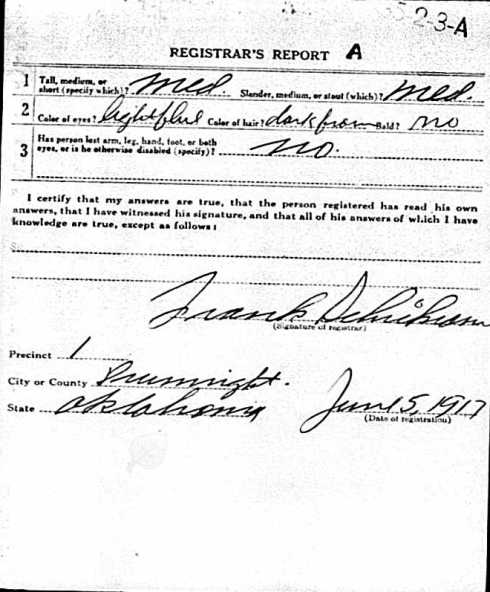 2-3-A
REGISTRAR'S REPORT A
1 Tall, medium, or short (specify which)? Med Slender, medium, or stout (which)? Med.
2 Color of eyes? light blue Color of hair? dark brown Bald? no
3 Has person lost arm, leg, hand, foot, or both
eyes, or is he otherwise disabled (specify)? no.
I certify that my answers are true, that the person registered has read his own
answers, that I have witnessed his signature, and that all of his answers of which I have
knowledge are true, except as follows:
Frank
(Signature of registrar)
Precinct 1
City or County
State Oklahoma June 5, 1917
(Date of registration)